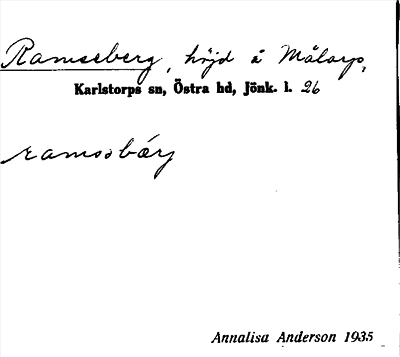 Ramseberg, höjd å Målarp,
Karlstorps sn, Östra hd, Jönk. l. 26
ramsəbárj
Annalisa Anderson 1935